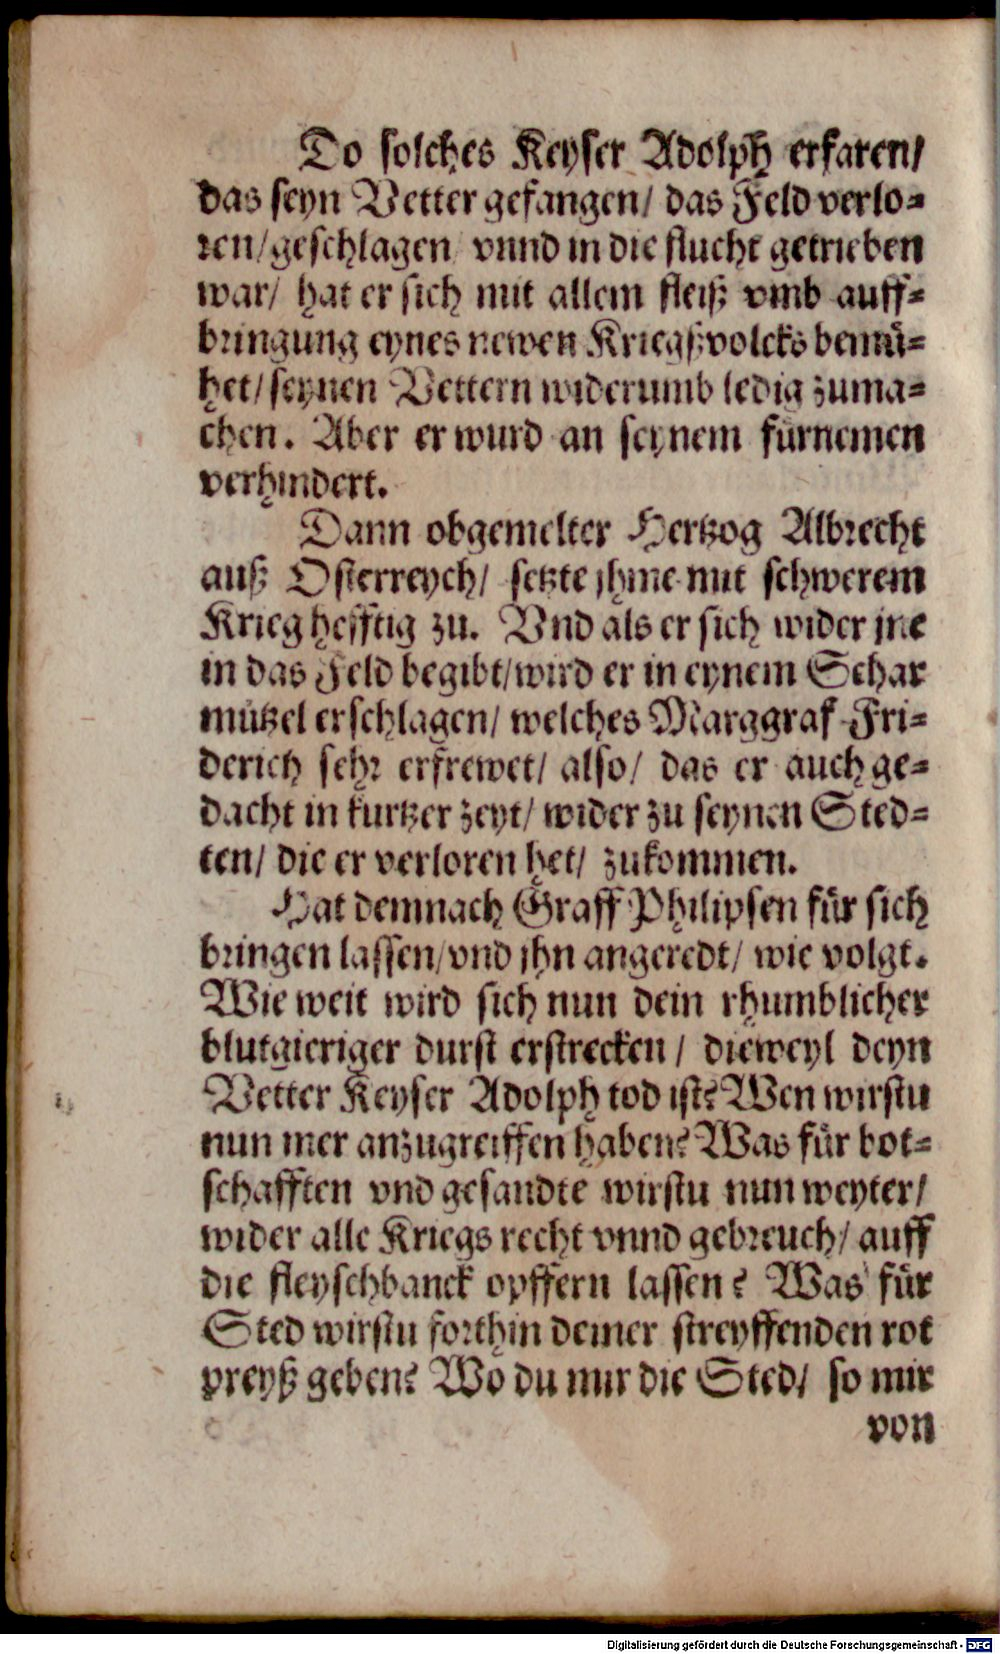 Do solches Keyser Adolph erfaren/
das seyn Vetter gefangen/ das Feld verlo-
ren/geschlagen vnnd in die flucht getrieben
war/ hat er sich mit allem fleiß vmb auff-
bringung eynes newen Kriegßvolcks bemü-
het/seynen Vettern widerumb ledig zuma-
chen. Aber er wurd an seynem fürnemen
verhindert.
Dann obgemelter Hertzog Albrecht
auß Osterreych/ setzte jhme mit schwerem
Krieg hefftig zu. Vnd als er sich wider jne
in das Feld begibt/wird er in eynem Schar
mützel erschlagen/ welches Marggraf Fri-
derich sehr erfrewet/ also/ das er auch ge-
dacht in kurtzer zeyt/ wider zu seynen Sted-
ten/ die er verloren het/ zukommen.
Hat demnach Graff Philipsen für sich
bringen lassen/vnd jhn angeredt/ wie volgt.
Wie weit wird sich nun dein rhumblicher
blutgieriger durst erstrecken / dieweyl deyn
Vetter Keyser Adolph tod ist? Wen wirstu
nun mer anzugreiffen haben? Was für bot-
schafften vnd gesandte wirstu nun weyter/
wider alle Kriegs recht vnnd gebreuch/ auff
die fleyschbanck opffern lassen? Was für
Sted wirstu forthin deiner streyffenden rot
preyß geben? Wo du nur die Sted/ so mir
von
Digitalisierung gefördert durch die Deutsche Forschungsgemeinschaft - DFG